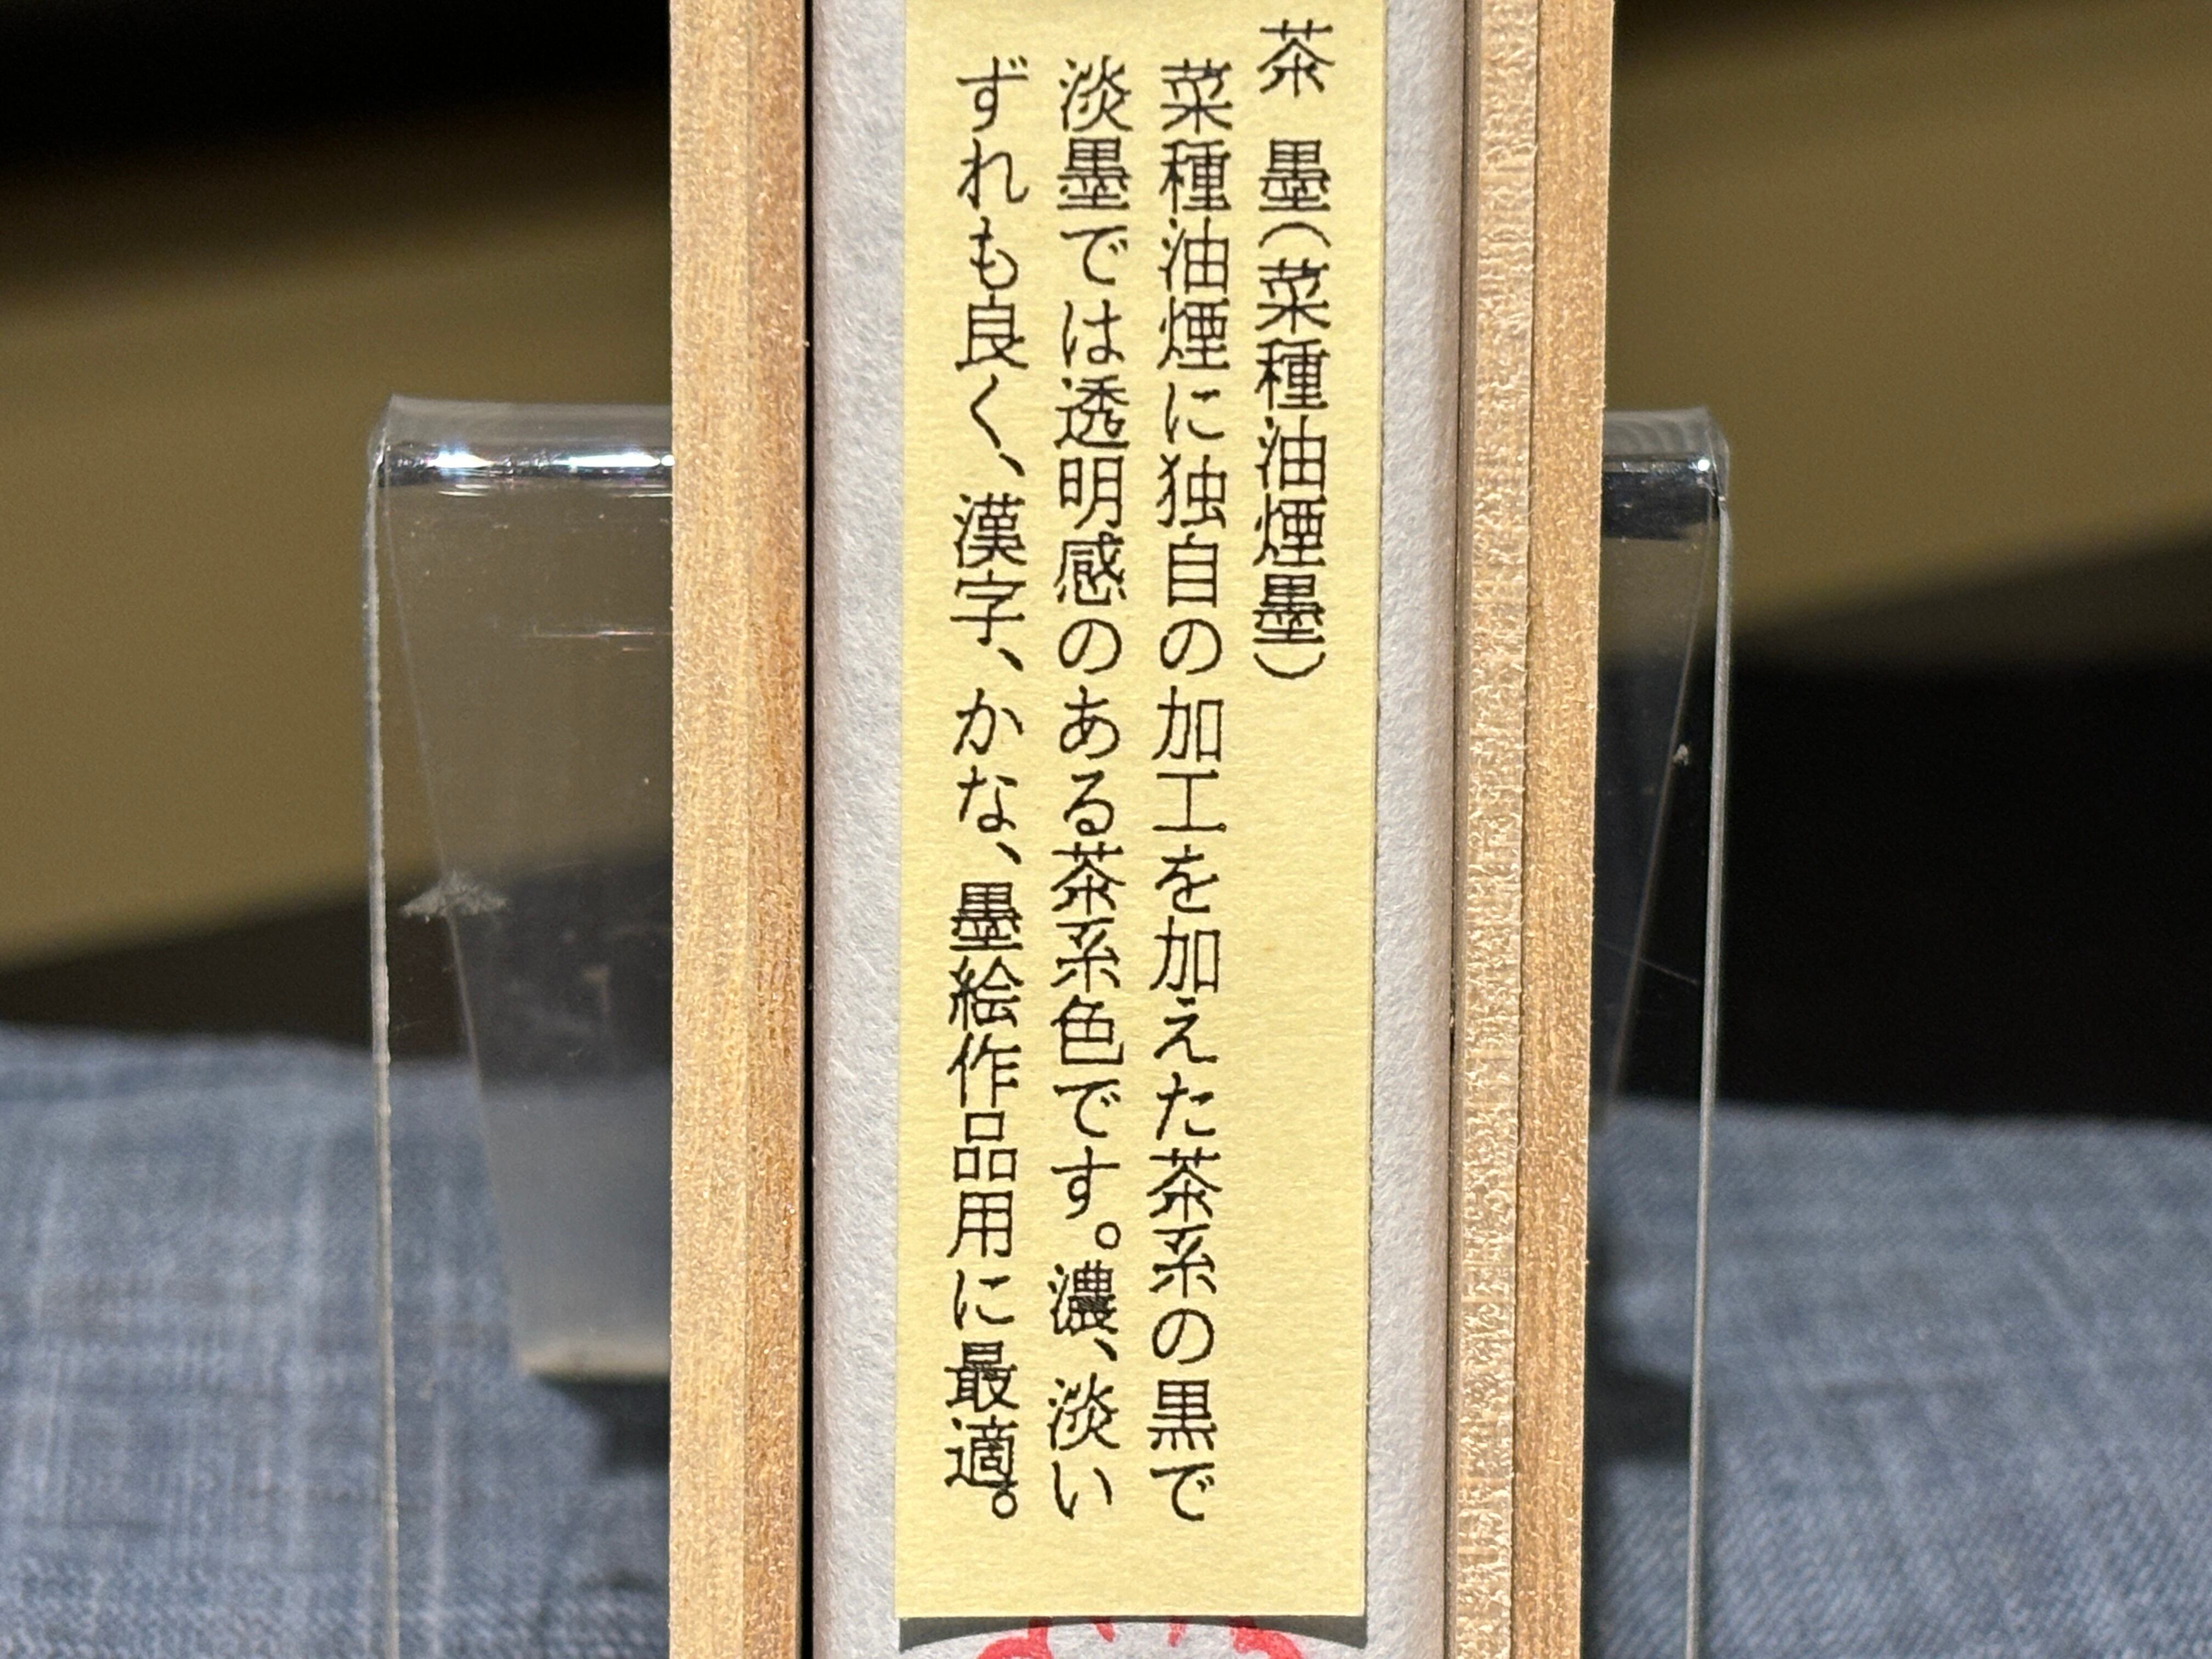 茶 墨(菜種油煙墨)
菜種油煙に独自の加工を加えた茶系の黒で
淡墨では透明感のある茶系色です。濃、淡い
ずれも良く、漢字、かな、墨絵作品用に最適。